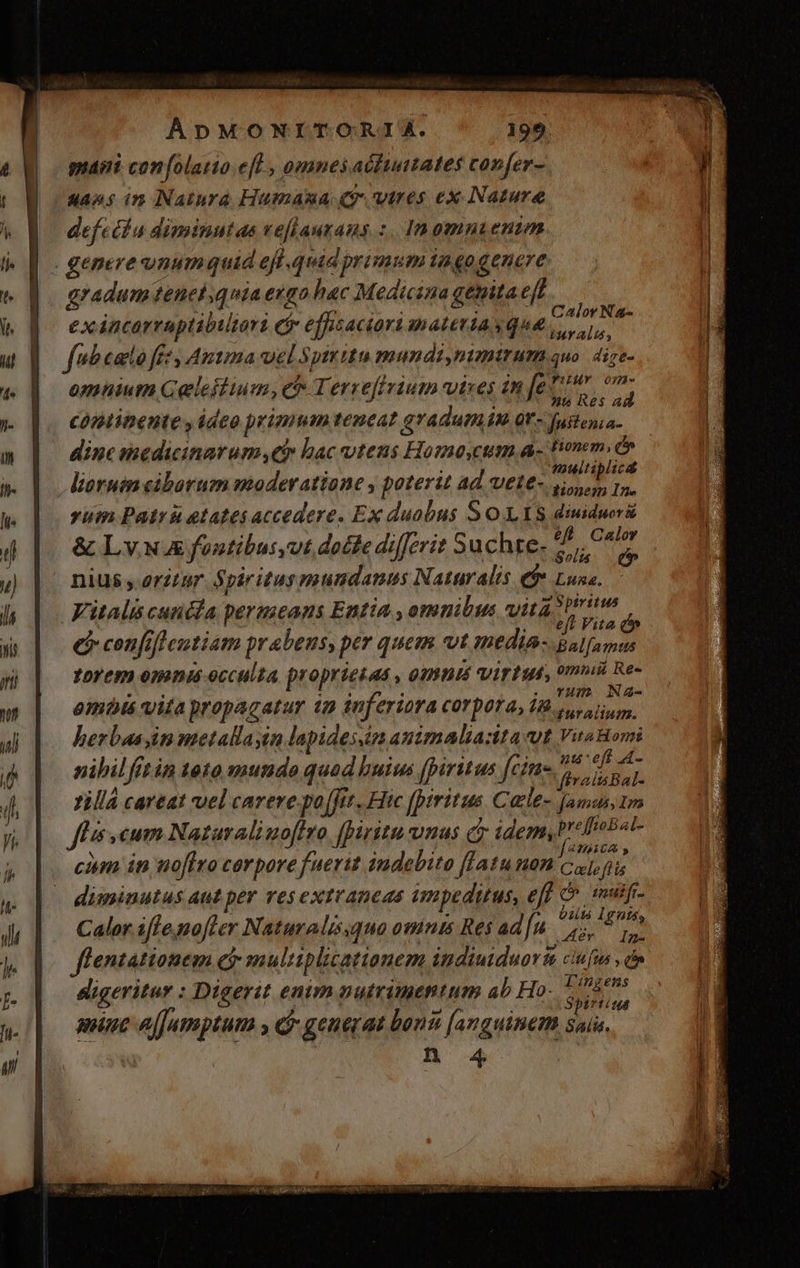 ADMONITORIA. 199
mani consolatio est, omnes actiuitates conser-
uans in Natura Humana, & vires ex Naturæ
defectu diminutas restaurans: In omni enim
genere vnum quid est, quid primum in eo genere
gradum tenet, quia ergo hæc Medicina genita est
ex incorruptibiliori & efficaciori materia, quæ
sub cælo sit, Anima vel Spiritu mundi, nimirum
omnium Cælestium, & Terrestrium vires in se
continente, ideo primum teneat gradum in or-
dine medicinarum, & hac vtens Homo, cum a-
liorum ciborum moderatione, poterit ad vete-
rum Patrū ætates accedere. Ex duobus SOLIS
& LVNÆ fontibus, vt docte disserit Suchte-
nius, oritur Spiritus mundanus Naturalis &
Vitalis cuncta permeans Entia, omnibus vitā
& consistentiam præbens, per quem vt media-
torem omnis occulta proprietas, omnis virtus,
omnis vita propagatur in inferiora corpora, in
herbas, in metalla, in lapides, in animalia: ita vt
nihil sit in toto mundo quod huius spiritus scin-
tillâ careat vel carere possit. Hic spiritus Cæle-
stis, cum Naturali nostro spiritu vnus & idem,
cùm in nostro corpore fuerit indebito statu non
diminutus aut per res extraneas impeditus, est
Calor iste noster Naturalis, quo omnis Res ad su
stentationem & multiplicationem indiuiduorū
digeritur: Digerit enim nutrimentum ab Ho-
mine assumptum, & generat bonū sanguinem
n 4
Calor Na-
turalis,
quo dige-
ritur om-
nis Res ad
sustenta-
tionem, &
multiplicat
tionem In-
diuiduorū
est Calor
Solis &
Lunæ.
Spiritus
est Vita &
Balsamus
omniū Re-
rum Na-
turalium.
Vita Homi
nis est A-
stralis Bal-
samus, Im
pressio Bal-
samica,
Cælestis
& inuisi-
bilis Ignis,
Aër In-
clusus, &
Tingens
Spiritus
Salis.